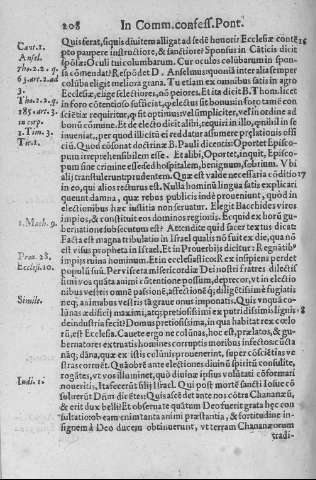 208 In Comm. confess. Pont.
Quis ferat, si quis diuitem alligat ad sedē honoris Ecclesiæ contē 16
Cant. 1.
pto paupere instructiore, & sanctiore? Sponsus in Cāticis dicit
Ansel.
spōsæ: Oculi tui columbarum. Cur oculos columbarum in spon-
Tho. 2. 2. q.
sa cōmendat? Respōdet D. Anselmus quoniā inter alia semper
63. art. 2. ad
colūba eligit meliora grana. Tu etiam ex omnibus satis in agro
3.
Ecclesiæ, elige selectiores, nō peiores. Et ita dicit B. Thom. licet
Tho. 2. 2. q.
in foro cōtentioso sufficiat, q̄ electus sit bonus in foro tamē con
185. art. 3.
sciētiæ requiritur, q̄ sit optimus vel simpliciter, vel in ordine ad
in corp.
bonū cōmune. Et de electo dicit alibi, requiri in illo, q̄ nihil in se
1. Tim. 3.
inueniat, per quod illicitū ei reddatur assumere prelationis offi
Tit. 1.
ciū. Quod cōsonat doctrinæ B. Pauli dicentis Oportet Episco-
pum irreprehensibilem esse. Et alibi, Oportet, inquit, Episco-
pum sine crimine esse: sed hospitalem, benignum, sobrium. Vbi
alij transtulerunt prudentem. Quæ est valde necessaria cōditio 17
in eo, qui alios recturus est. Nulla hominū lingua satis explicari
queunt damna, quæ rebus publicis inde proueniunt, quōd in
electionibus hæc iustitia non seruatur. Elegit Bacchides viros
impios, & constituit eos dominos regionis. Ecquid ex horū gu-
1. Mach. 9.
bernatione subsecutum est? Attendite quid sacer textus dicat:
Facta est magna tribulatio in Israel qualis nō fuit ex die, qua nō
est visus propheta in Israel. Et in Prouerbijs dicitur: Regnātib⁹
Prou. 28.
impijs ruina hominum. Et in ecclesiastico: Rex insipiens perdet
Ecclesi. 10.
populū suū. Per viscera misericordiæ Dei nostri fratres dilectis
simi vos quāta animi cōtentione possum, deprecor, vt in electio
nibus vestris omnē passionē, affectionē q̄; diligētissimè fugiatis
Simile.
neq; animabus vestris tā graue onus imponatis. Quis vnquā co-
lūnas ædificij maximi, atq; pretiosissimi ex putridissimis lignis 18
de industria fecit? Domus pretiosissima, in qua habitat rex cœlo
rū, est Ecclesia. Cauete ergo ne colūnas, hoc est, prælatos, & gu-
bernatores extruatis homines corruptis moribus infectos: cūcta
nāq; dāna, quæ ex istis colūnis prouenirent, super cōsciētias ve-
stras cornēt. Quā obrē ante electiones diuinū spiritū consulite,
rogātes, vt vos illuminet, quò diuinæ ipsius volūtati cōformari
Iudi. 1.
noueritis, Ita fecerūt filij Israel. Qui post mortē sancti Iosue cō
suluerūt Dñm dicētes: Quis ascēdet ante nos cōtra Chananæū,
& erit dux belli? Et obseruate quātum Deo fuerit grata hęc con
sultatio: ob eam enim tanta animi præstantia, & fortitudine in-
signem à Deo ducem obtinuerunt, vt terram Chananæorum
tradi-